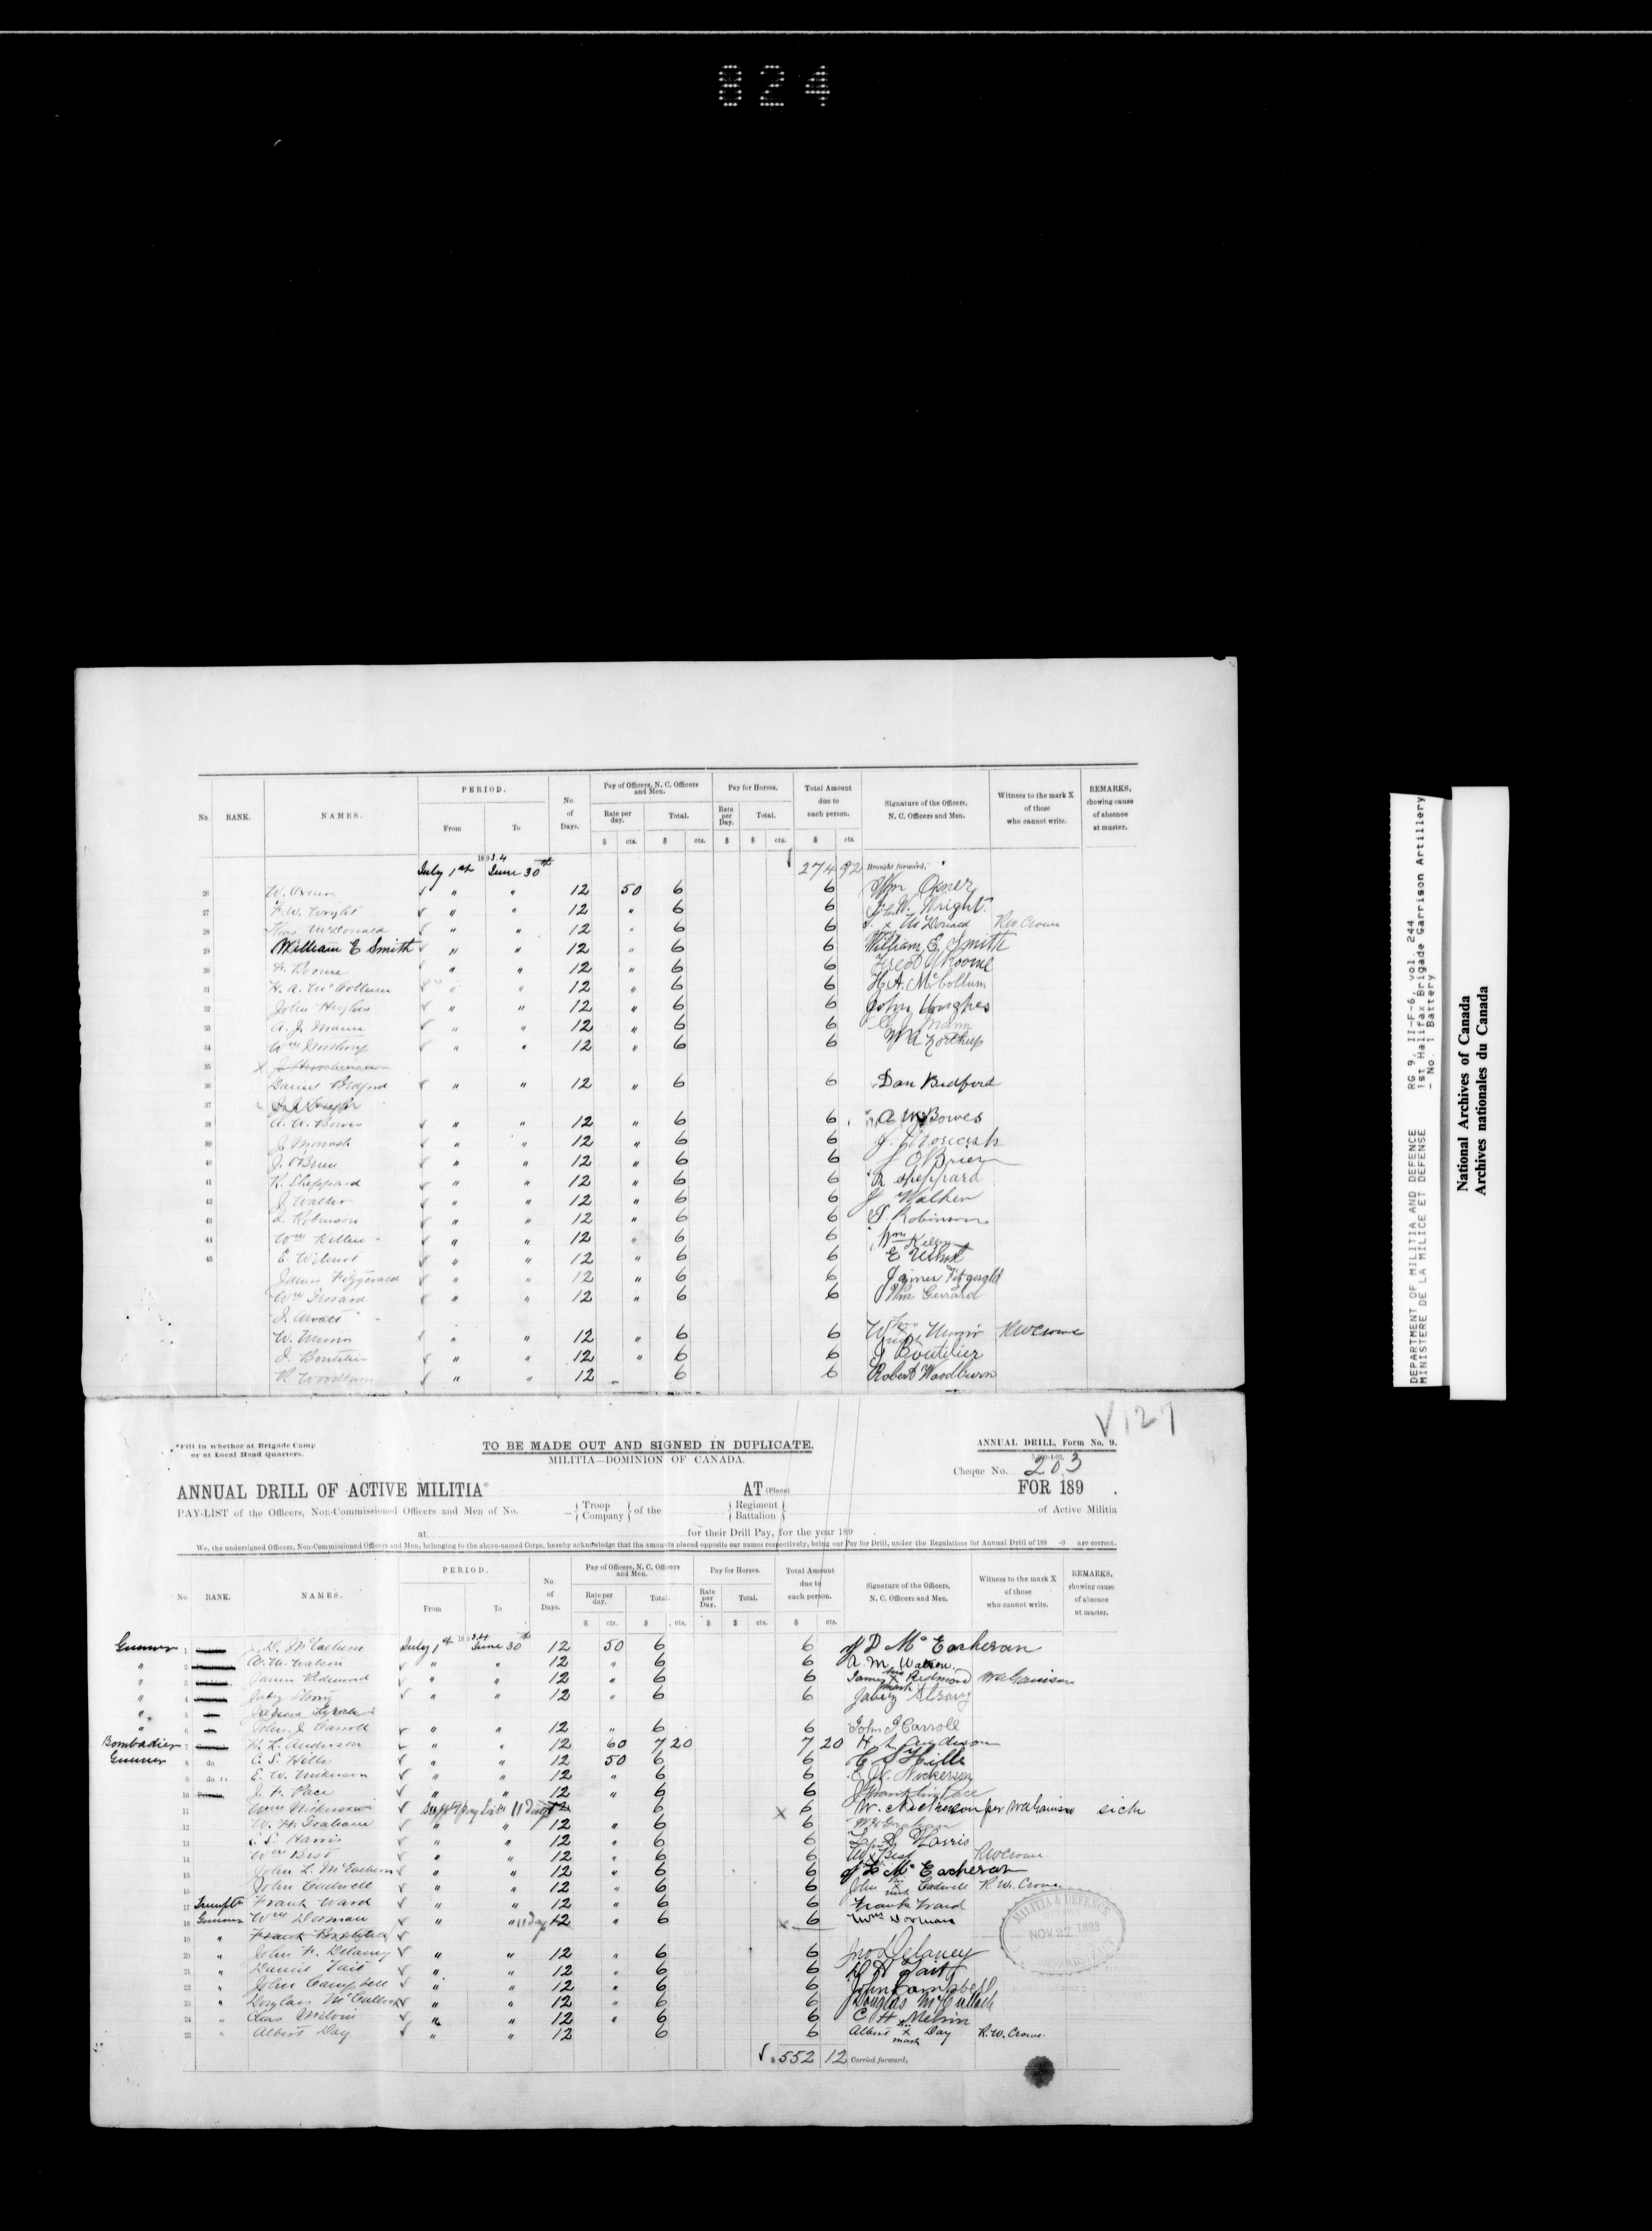 824
No. RANK. NAMES. PERIOD. From To No. of Days. Pay of Officers, N. C. Officers and Men. Rate per day. $ cts. Total. $ cts. Pay for Horses. Rate per Day. $ Total. $ cts. Total Amount due to each person. $ cts. Signature of the Officers, N. C. Officers and Men. Witness to the mark X of those who cannot write. REMARKS, showing cause of absence at muster.
July 1st 1893.4 June 30th 274 92 Brought forward,
26 W. 12 50 6 6 Wm Oxner
27 F. W. Wright " " 12 " 6 6 W. Wright
28 Thos McDonald " " 12 " 6 6 T. x McDonald R W Crowe
29 William E Smith " " 12 " 6 6 William E. Smith
30 F. Roome " " 12 " 6 6 Fred Roome
31 H. A. McCollum " " 12 " 6 6 H. A. McCollum
32 John Hughes " " 12 " 6 6 John Hughes
33 A. J. Mann " " 12 " 6 6 Mann
34 Wm Northup " " 12 " 6 6 W A Northup
35 X
36 Daniel Bedford " " 12 " 6 6 Dan Bedford
37
38 A. W. Bowes " " 12 " 6 6 A W Bowes
39 J. Monash " " 12 " 6 6 J.
40 J. O'Brien " " 12 " 6 6 J O'Brien
41 R. Sheppard " " 12 " 6 6 R Sheppard
42 J. Walker " " 12 " 6 6 J Walker
43 Robinson " " 12 " 6 6 Robinson
44 Wm " " 12 " 6 6 Wm
45 E. " " 12 " 6 6 E
James Fitzgerald " " 12 " 6 6 James Fitzgerald
Wm " " 12 " 6 6 Wm Gerrard
J.
W. " " 12 " 6 6 R W Crowe
J. Boutilier " " 12 " 6 6 J Boutilier
R Woodburn " " 12 6 6 Robert Woodburn
V 127
*Fill in whether at Brigade Camp or at Local Head Quarters.
TO BE MADE OUT AND SIGNED IN DUPLICATE.
MILITIA—DOMINION OF CANADA.
ANNUAL DRILL, Form No. 9.
Cheque No. 203
ANNUAL DRILL OF ACTIVE MILITIA* AT (Place) FOR 189 .
PAY-LIST of the Officers, Non-Commissioned Officers and Men of No. { Troop Company } of the { Regiment Battalion } of Active Militia
at for their Drill Pay, for the year 189
We, the undersigned Officers, Non-Commissioned Officers and Men, belonging to the above-named Corps, hereby acknowledge that the amounts placed opposite our names respectively, being our Pay for Drill, under the Regulations for Annual Drill of 189 -9 are correct.
No. RANK. NAMES. PERIOD. From To No. of Days. Pay of Officers, N. C. Officers and Men. Rate per day. $ cts. Total. $ cts. Pay for Horses. Rate per Day. $ Total. $ cts. Total Amount due to each person. $ cts. Signature of the Officers, N. C. Officers and Men. Witness to the mark X of those who cannot write. REMARKS, showing cause of absence at muster.
Gunner 1 J. D. McEachern July 1st 1893.4 June 30th 12 50 6 6 J D McEacheran
" 2 A. M. Watson " " 12 " 6 6 A. M. Watson
" 3 James Redmond " " 12 " 6 6 James his x mark Redmond
" 4 Jabez Strong " " 12 " 6 6 Jabez Strong
" 5
" 6 John J. Carroll " " 12 " 6 6 John J Carroll
Bombadier 7 H. L. Anderson " " 12 60 7 20 7 20 H L Anderson
Gunner 8 do C. S. Hills " " 12 50 6 6 C S Hills
9 do E. W. Nickerson " " 12 " 6 6 E. W. Nickerson
10 Private J. F. Pace " " 12 " 6 6 J Franklin Pace
11 Wm Nickerson Supply pay list 11 days 12 6 X 6 W. Nickerson per sick
12 W. H. Graham " " 12 " 6 6 W H Graham
13 S. Harris " " 12 " 6 6 Harris
14 Wm Best " " 12 " 6 6 W x Best R W Crowe
15 John L. McEachern " " 12 " 6 6 J L McEacheran
16 John Cadwell " " 12 " 6 6 John x mark Cadwell R. W. Crowe
Trumpter 17 Frank Ward " " 12 " 6 6 Frank Ward
Gunner 18 Wm Dorman " " 11 Day 12 " 6 X 6 Wm Dorman
" 19 Frank
" 20 John F. Delaney " " 12 " 6 6 Jno Delaney
" 21 Daniel Tait " " 12 " 6 6 D H Tait
" 22 John Campbell " " 12 " 6 6 John Campbell
" 23 Douglas McCulloch " " 12 " 6 6 Douglas McCulloch
" 24 Chas Melvin " " 12 " 6 6 C H Melvin
" 25 Albert Day " " 12 6 6 Albert his x mark Day R. W. Crowe
$ 552 12 Carried forward,
MILITIA & DEFENCE
NOV 22 1893
DEPARTMENT OF MILITIA AND DEFENCE RG 9, II-F-6, vol. 244
MINISTERE DE LA MILICE ET DEFENSE 1st Halifax Brigade Garrison Artillery
- No. 1 Battery
National Archives of Canada
Archives nationales du Canada